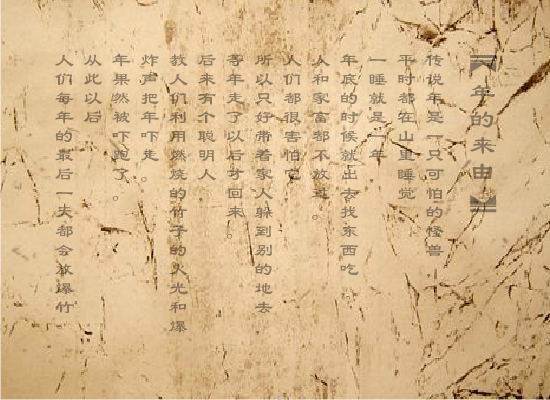 【年的来由】
传说年是一只可怕的怪兽.
平时都在山里睡觉
一睡就是一年
年底的时候就出去找东西吃
人和家畜都不放过。
人们都很害怕它
所以只好带着家人躲到别的地去
等年走了以后才回来。
后来有个聪明人
教人们利用燃烧的竹子的火光和爆
炸声把年吓走。
年果然被吓跑了。
从此以后
人们每年的最后一天都会放爆竹